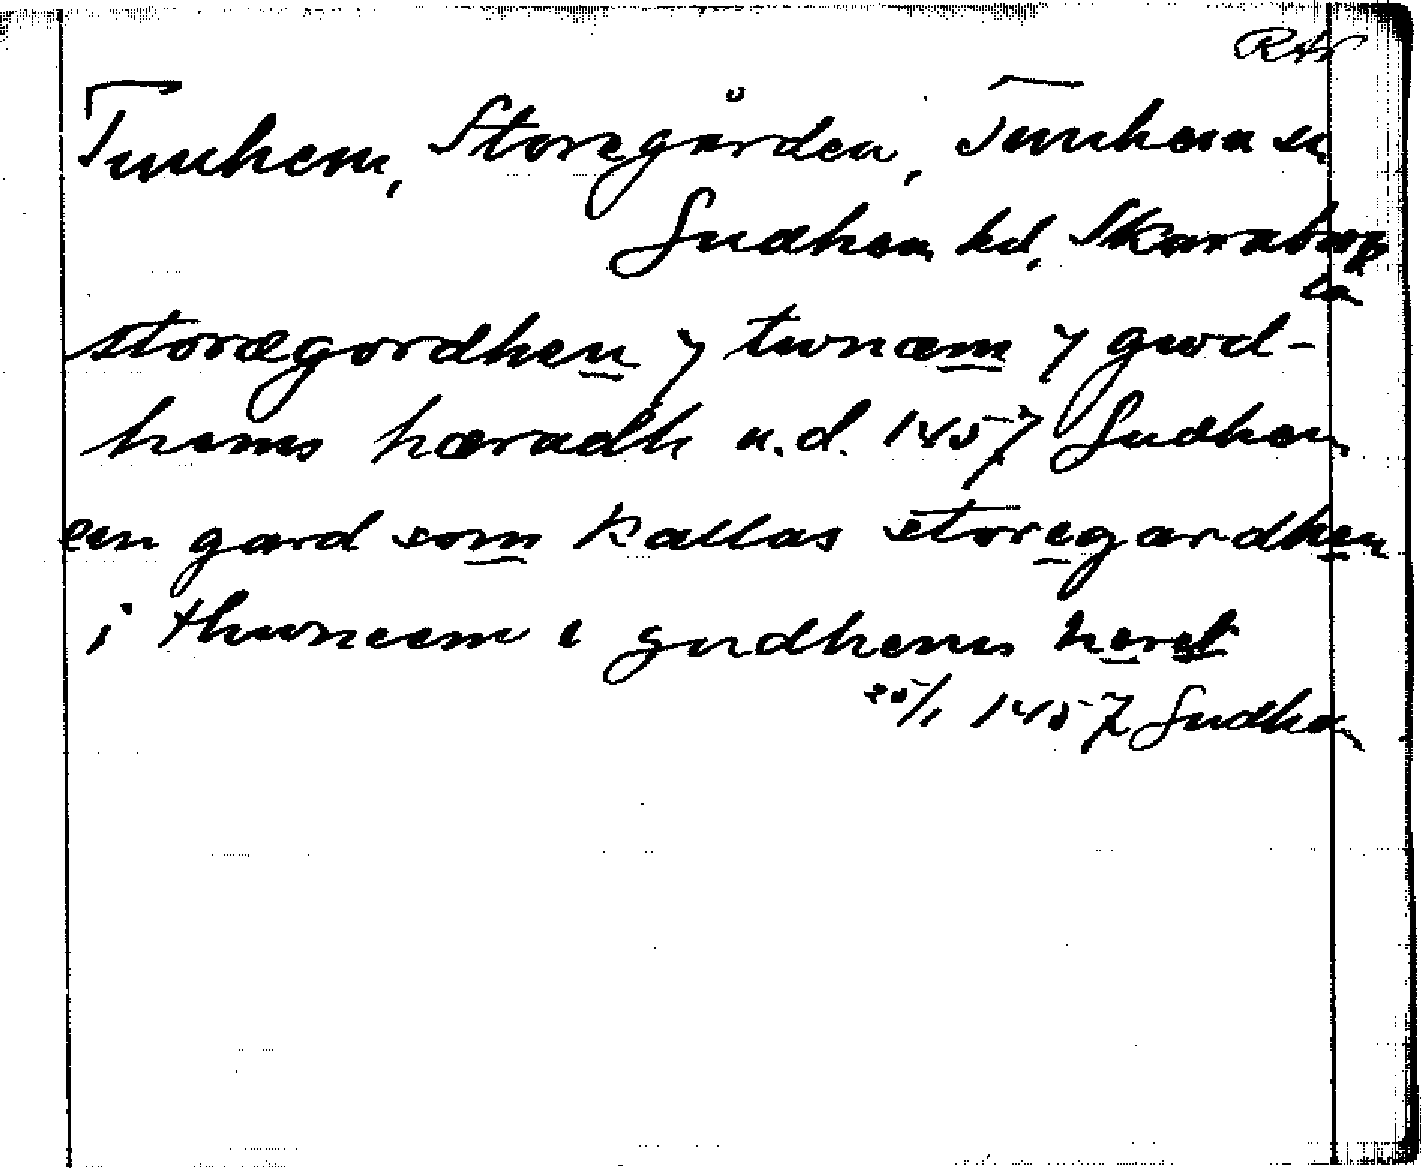 RAp
Tunhem, Storegården, Tunhem sn
Gudhem hd, Skaraborgs
län
storægordhen y twnæm y gwd-
hems hæradh u.d. 1457 Gudhem
een gard som kallas storegardhen
i thwneem i gudhems heret
25/1 1457 Gudhem